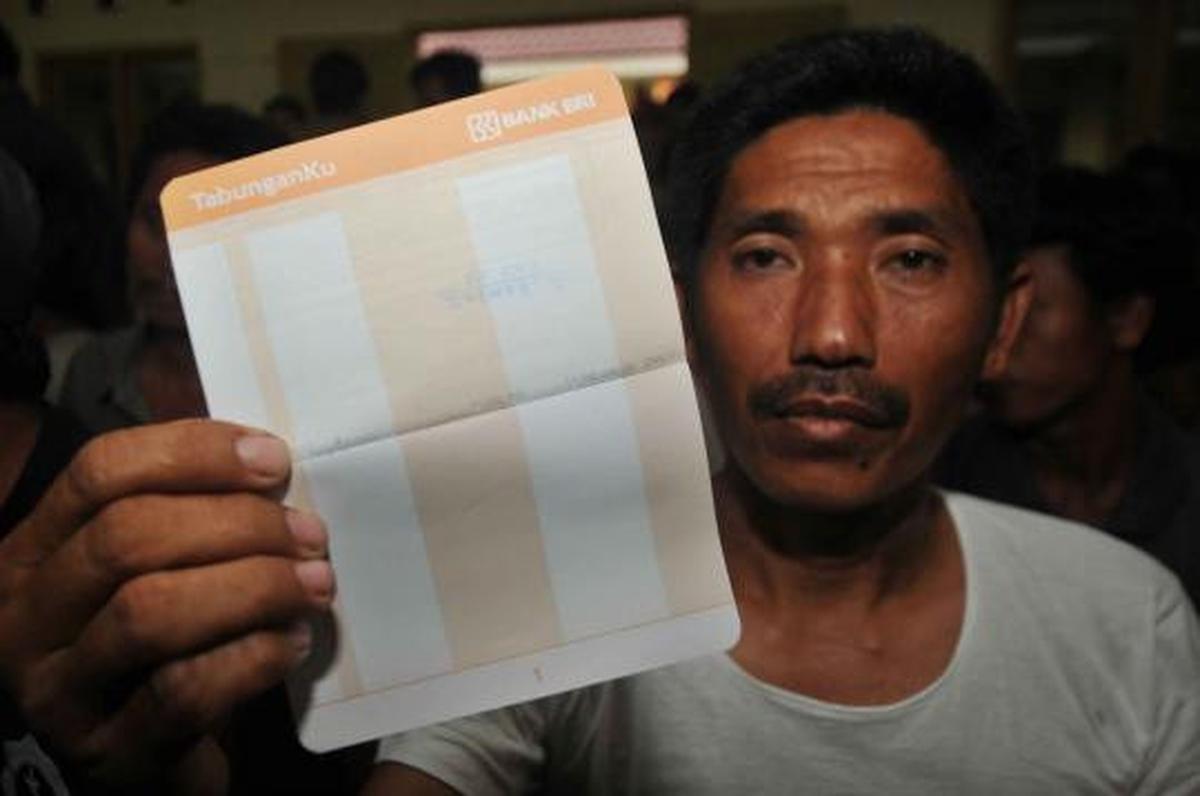 BANK BRI
TabunganKu
1